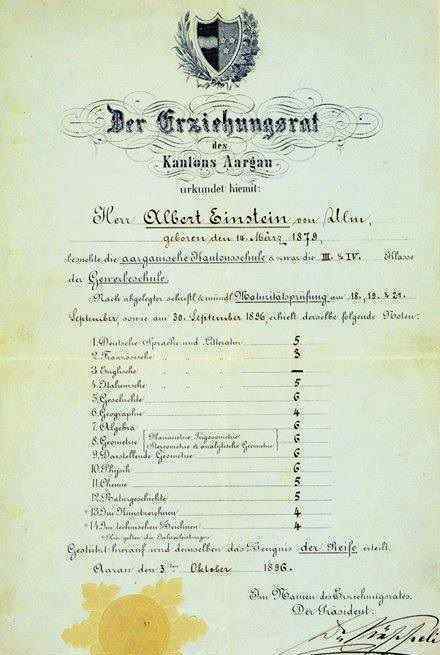 Der Erziehungsrat
des
Kantons Aargau
urkundet hiemit:
Herr Albert Einstein von Ulm,
geboren den 14. März 1879,
besuchte die aargauische Kantonsschule & zwar die III. & IV. Klasse
der Gewerbeschule.
Nach abgelegter schriftl. & mündl. Maturitätsprüfung am 18., 19. & 21.
September, sowie am 30. September 1896, erhielt derselbe folgende Noten:
1. Deutsche Sprache und Litteratur 5
2. Französische " " " 3
3. Englische " " " —
4. Italienische " " " 5
5. Geschichte 6
6. Geographie 4
7. Algebra 6
8. Geometrie [Planimetrie, Trigonometrie, Stereometrie & analytische Geometrie] 6
9. Darstellende Geometrie 6
10. Physik 6
11. Chemie 5
12. Naturgeschichte 5
*13. Im Kunstzeichnen 4
*14. Im technischen Zeichnen 4
* Hier gelten die Jahresleistungen.
Gestützt hierauf wird demselben das Zeugnis der Reife erteilt.
Aarau den 3ten Oktober 1896.
Im Namen des Erziehungsrates,
Der Präsident: